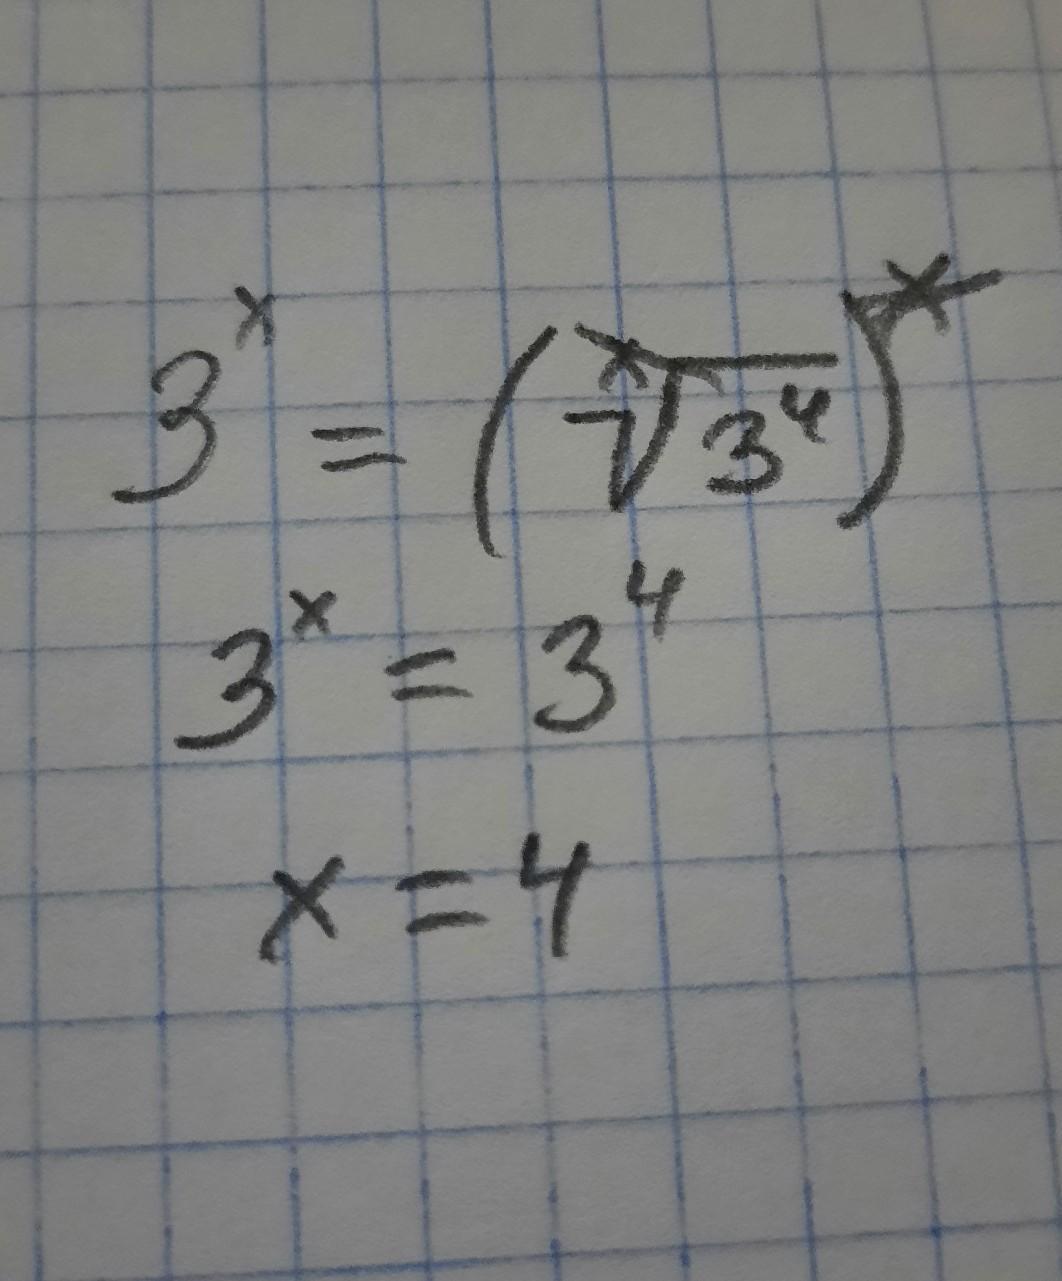 3^x = (\sqrt[x]{3^4})^x
3^x = 3^4
x = 4